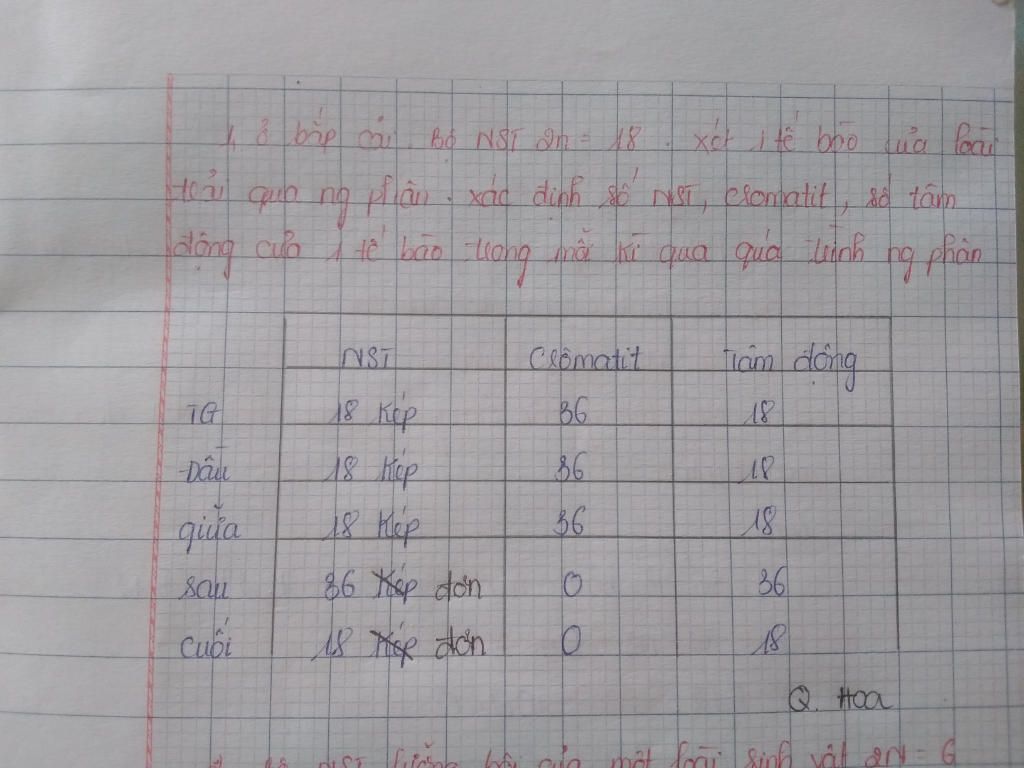 1, Ở bắp cải. Bộ NST 2n = 18. xét 1 tế bào của loài
trải qua ng phân. xác định số NST, cromatit, số tâm
động của 1 tế bào trong mỗi kì qua quá trình ng phân
NST Crômatit Tâm động
TG 18 Kép 36 18
Đầu 18 Kép 36 18
giữa 18 Kép 36 18
sau 36 Kép đơn 0 36
cuối 18 Kép đơn 0 18
Q. Hoa
NST lưỡng bội của một loài sinh vật 2n = 6